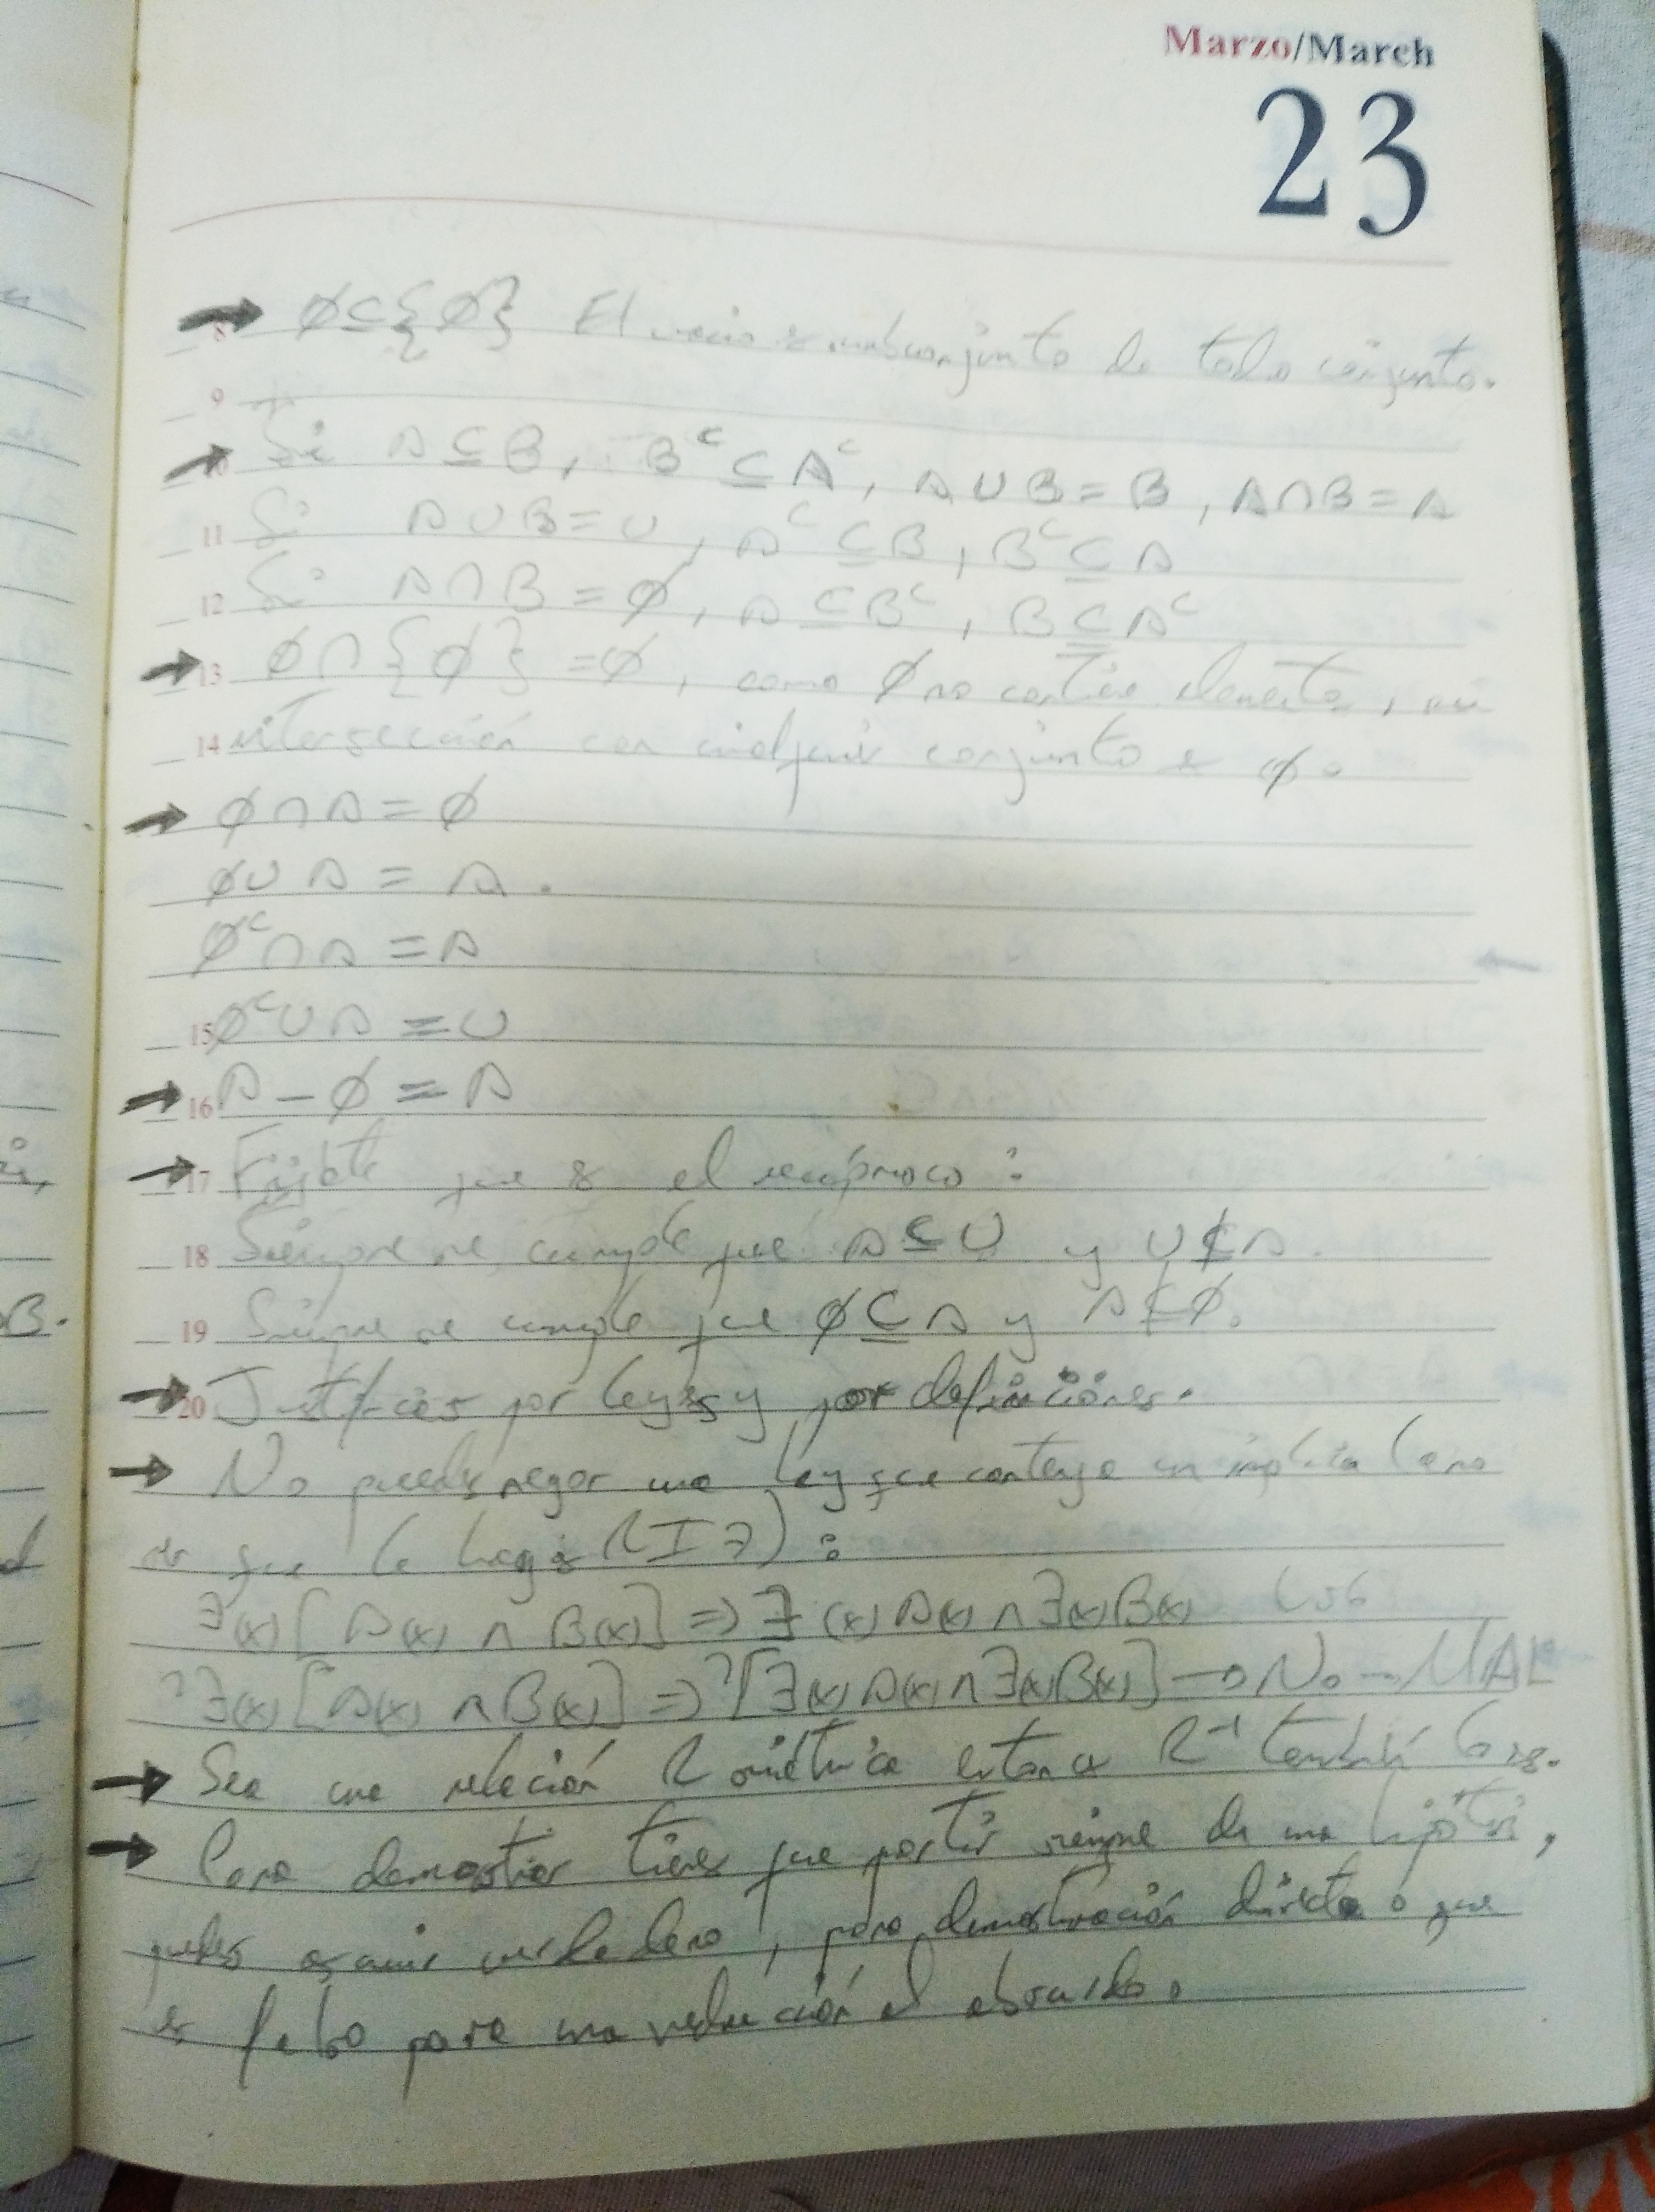 Marzo/March
23
→ ∅⊆{∅} El vacio es subconjunto de todo conjunto.
8
9
→ Si A⊆B, B^c⊆A^c, A∪B=B, A∩B=A
10
11 Si A∪B=U, A^c⊆B, B^c⊆A
12 Si A∩B=∅, A⊆B^c, B⊆A^c
→ 13 ∅∩{∅}=∅, como ∅ no contiene elementos, su
14 intersección con cualquier conjunto es ∅.
→ ∅∩A=∅
∅∪A=A.
∅^c∩A=A
15 ∅^c∪A=U
→ 16 A-∅=A
→ 17 Fijate que es el recíproco:
18 Siempre se cumple que A⊆U y U⊄A.
19 Siempre se cumple que ∅⊆A y A⊄∅.
→ 20 Justificar por leyes y por definiciones.
→ No puedes negar una ley que contenga un implica (a no
ser que lo hagas (I7):
∃(x)[A(x) ∧ B(x)] ⇒ ∃(x)A(x) ∧ ∃(x)B(x) L56
¬∃(x)[A(x) ∧ B(x)] ⇒ ¬[∃(x)A(x) ∧ ∃(x)B(x)] → No → MAL
→ Sea una relación R simétrica entonces R^-1 también lo es.
→ Para demostrar tienes que partir siempre de una hipótesis,
puedes asumir verdadero, para demostración directa o que
es falso para una reducción al absurdo.
B.